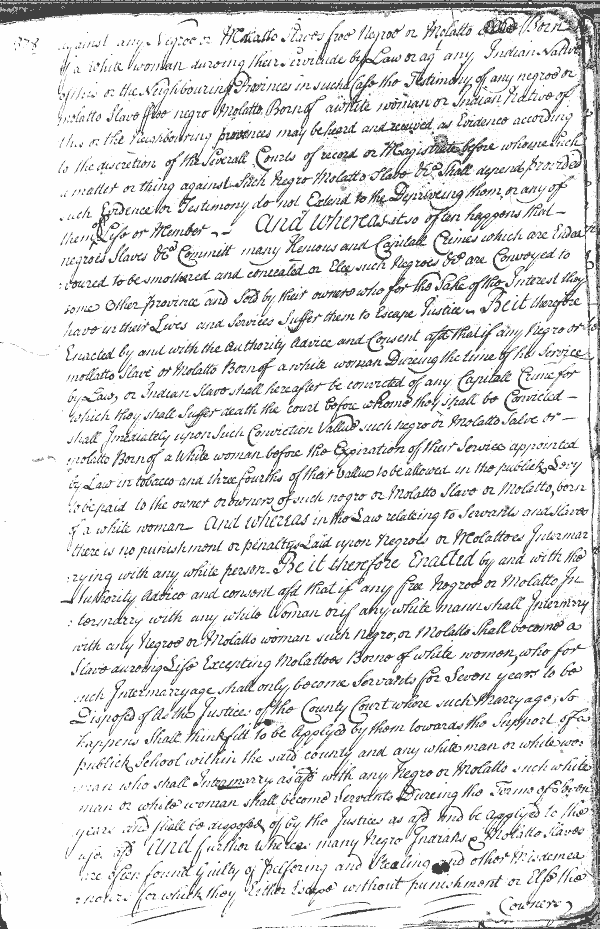 378
against any Negroe or Molatto Slave free Negroe or Molatto Born
of a white woman dureing their servitude by Law or ag any Indian Native
of this or the Neighbouring Provinces in such Case the Testimony of any negroe or
molatto Slave free negro Molatto Born of a white woman or Indian Native of
this or the Neighbouring provinces may be heard and received as Evidence according
to the discretion of the Severall Courts of record or Magistrate before whome such
a matter or thing against Such Negro Molatto Slave &c Shall depend Provided
such Evidence or Testimony do not Extend to the Depriveing them or any of
them of Life or Member And whereas it so often happens that
negroes Slaves &c Committ many Henous and Capitall Crimes which are Endea
voured to be smothered and concealed or Else such Negroes &c are Conveyed to
some Other Province and Sold by their owners who for the Sake of the Interest they
have in their Lives and Services Suffer them to Escape Justice Be it therefore
Enacted by and with the Authority Advice and Consent afd that if any Negro or
mollatto Slave or Molatto Born of a white woman Dureing the time of his Service
by Law, or Indian Slave shall hereafter be convicted of any Capitall Crime for
which they shall Suffer death the court before whome they shall be Convicted
shall Imediately upon Such Conviction Value such negro or Molatto Salve or
molatto Born of a White woman before the Expiration of their Service appointed
by Law in tobacco and three fourths of their value to be allowed in the publick Levy
to be paid to the owner or owners of such negro or Molatto Slave or Molatto, born
of a white woman And whereas in the Law relating to Servants and Slaves
there is no punishment or penaltys Laid upon Negroes or Molattoes Intermar
rying with any white person Be it therefore Enacted by and with the
Authority Advice and consent afd that if any free Negroe or Molatto In
termarry with any white Woman or if any white mann shall Intermarry
with any Negroe or Molatto woman such Negro, or Molatto Shall become a
Slave dureing Life Excepting Molattoes Borne of white women, who for
such Intermarryage shall only become Servants for Seven years to be
Disposed of As the Justices of the County Court where such Marryage, so
happens Shall think fitt to be Applyed by them towards the Support of a
publick School within the said county and any white man or white wo
man who shall Intermarry as afd with any Negro or Molatto such white
man or white woman shall become Servants Dureing the Terme of Seven
years and shall be disposed of by the Justices as afd and be applyed to the
uses afd And further whereas many Negro Indians & Molatto Slaves
are often found Guilty of Pelfering and Stealing and other Misdemea
nors for which they Either Escape without punishment or Else the
(owners)